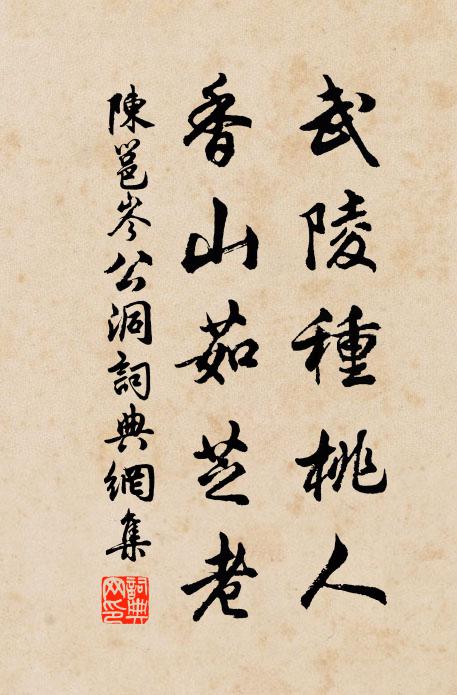 武陵種桃人
香山茹芝老
陳邕岑公洞詞典網集
詞典网印